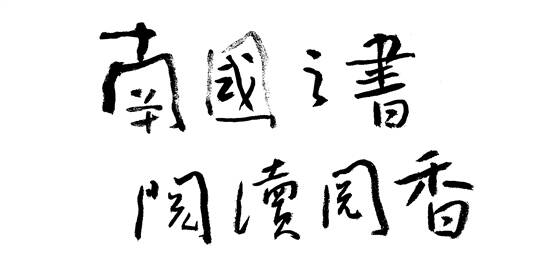 南國之書
閱讀閱香